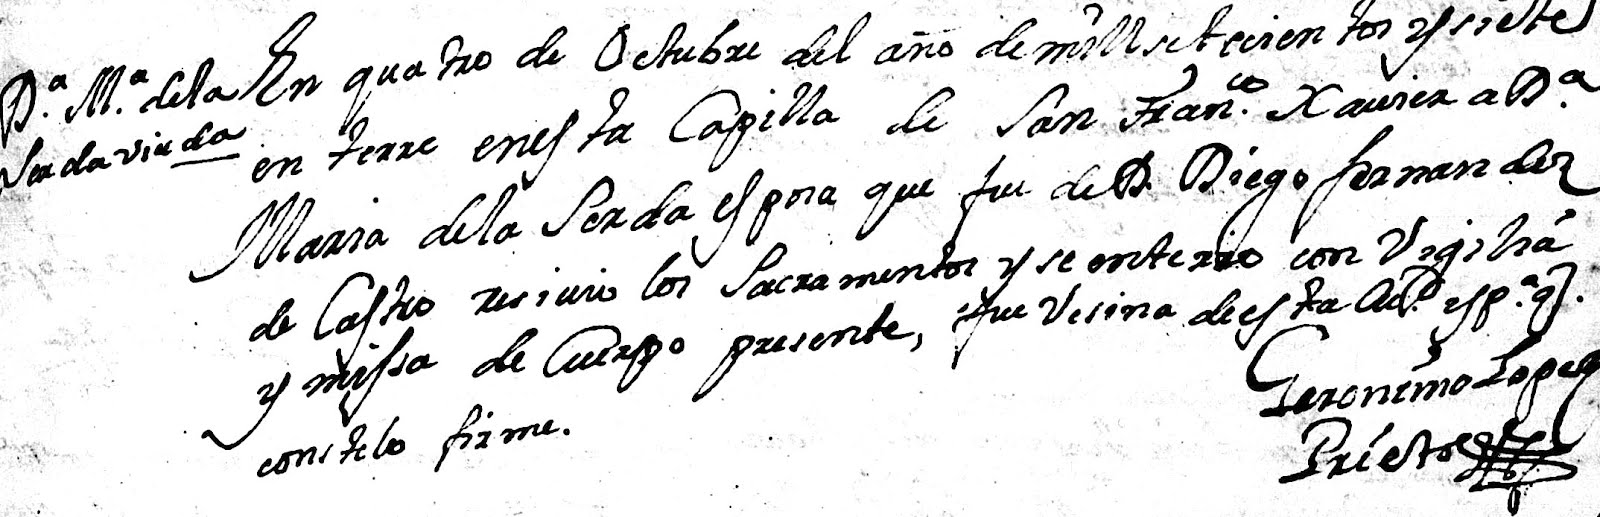 D.ª M.ª dela
Serda viuda
En quatro de Octubre del año de mill setecientos y siete
en terre en esta Capilla de San Fran.co Xavier a D.ª
Maria dela Serda esposa que fue de D. Diego fernandez
de Castro resivio los Sacramentos y se enterro con Vigilia
y missa de Cuerpo presente, fue Vesina de esta Ciud. y p.ª q.
conste lo firme.
Geronimo Lopez
Prieto